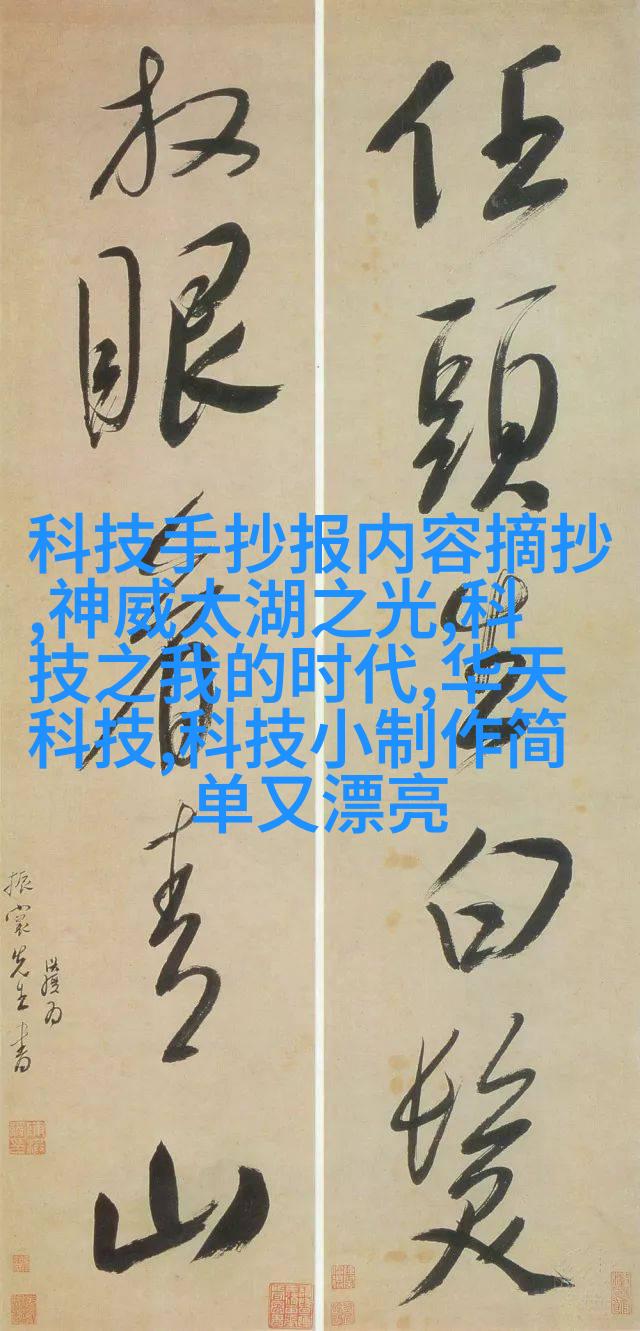 任頭生白髮
放眼看青山
振裳先生書
科技手抄报内容摘抄
,神威太湖之光,科
技之我的时代,华天
科技,科技小制作简
单又漂亮